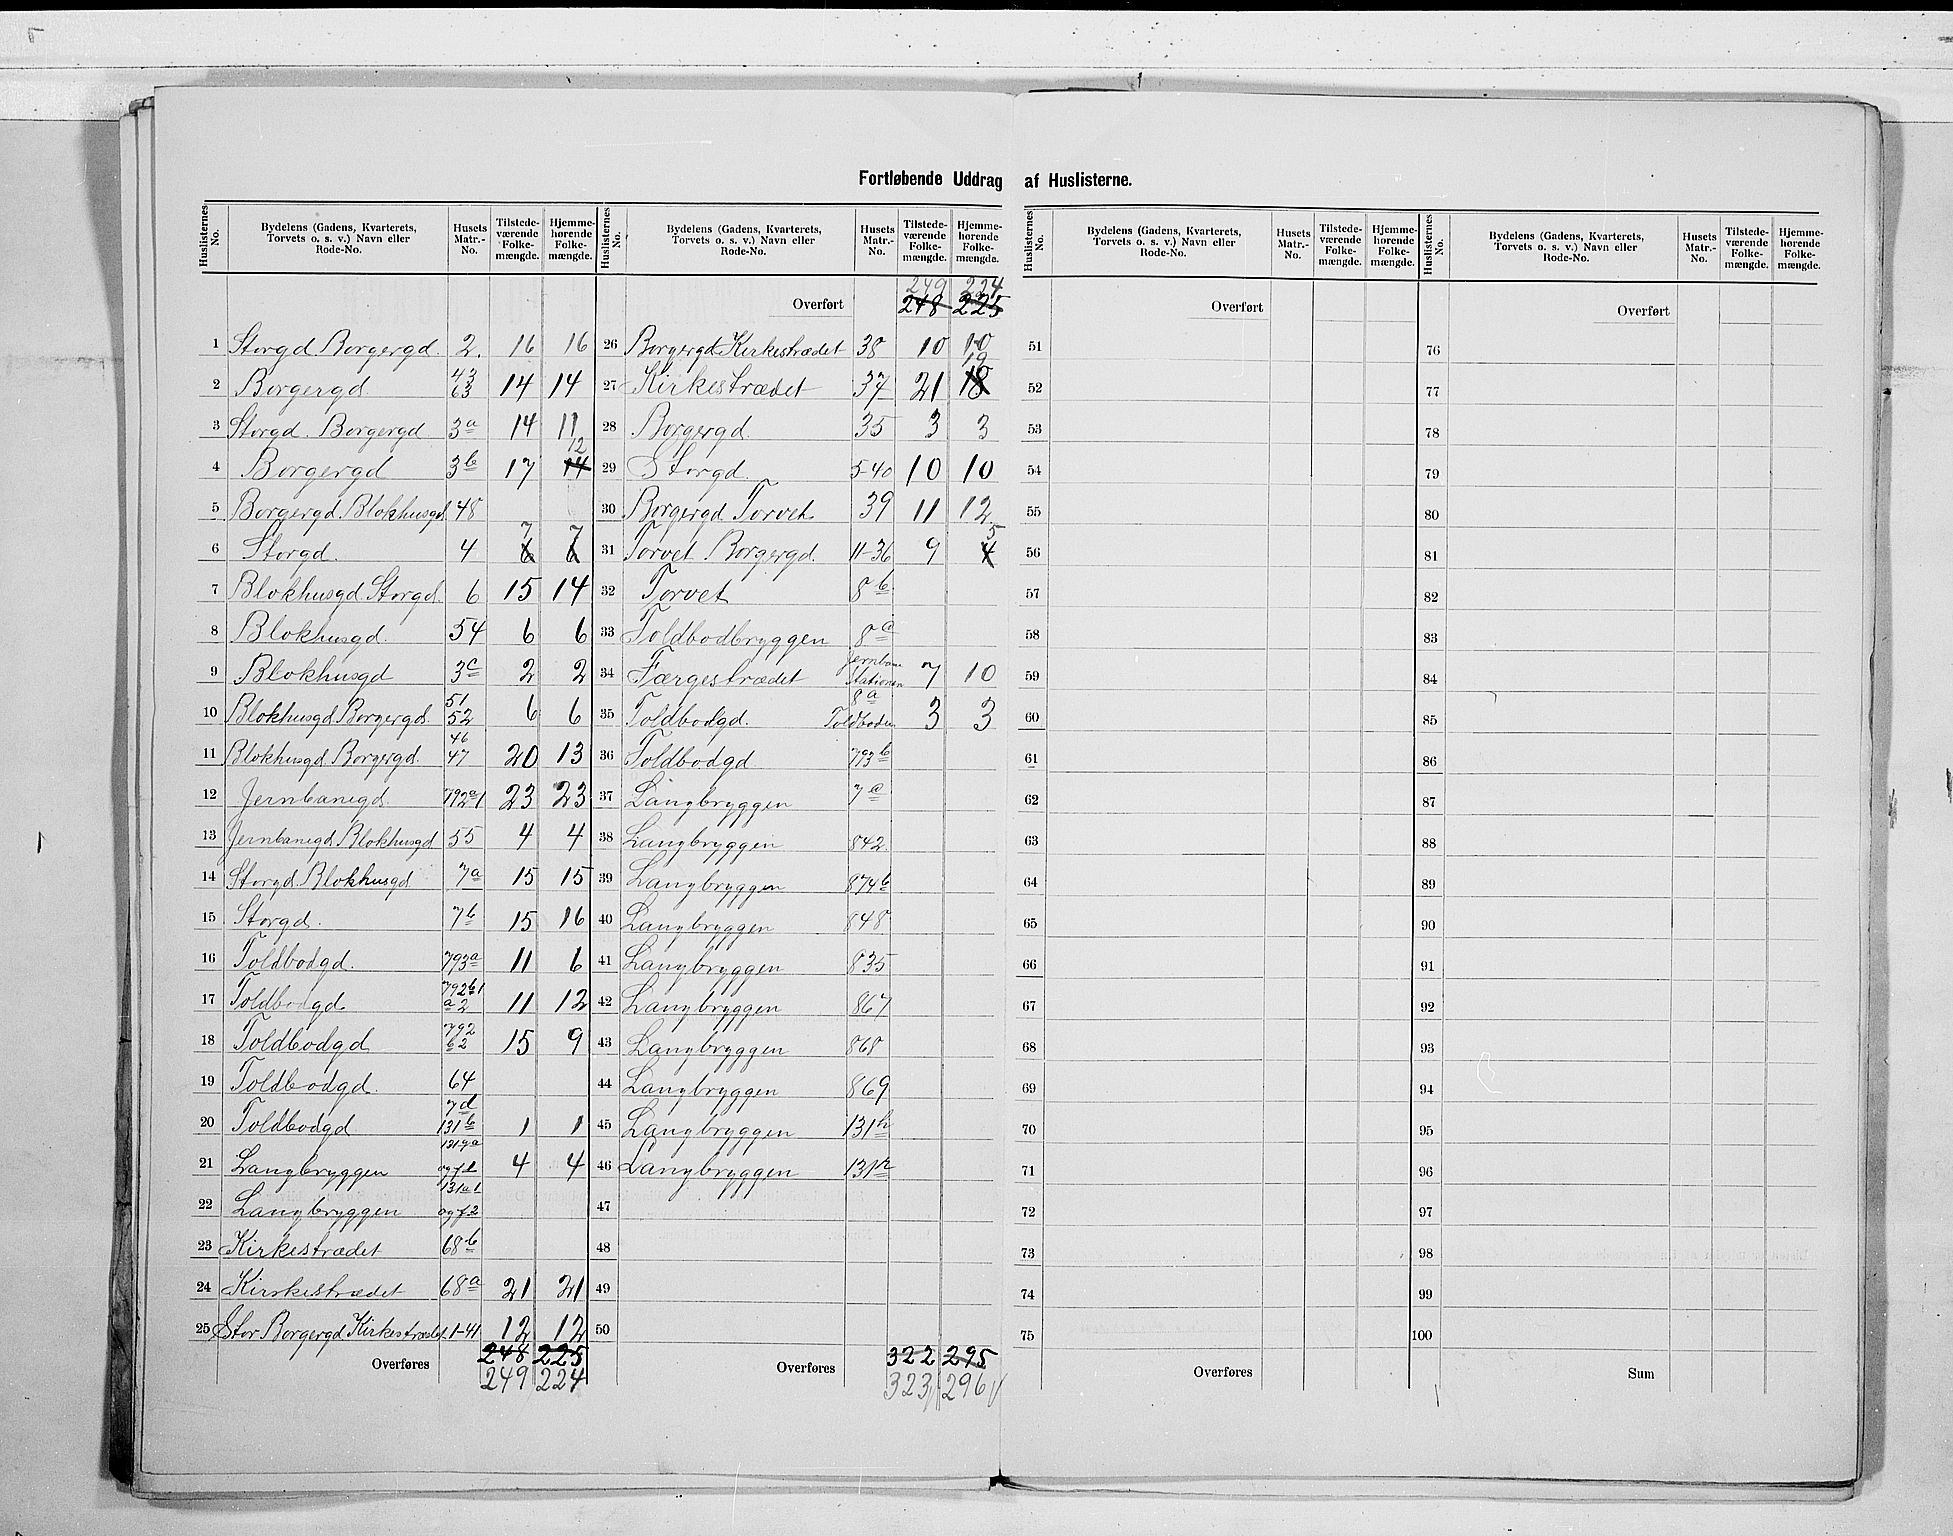 Fortløbende Uddrag af Huslisterne.
Huslisternes No. | Bydelens (Gadens, Kvarterets, Torvets o. s. v.) Navn eller Rode-No. | Husets Matr.-No. | Tilstedeværende Folkemængde. | Hjemmehørende Folkemængde.
1 Storgd. Borgergd. 2. 16 16
2 Borgergd. 43 63 14 14
3 Storgd. Borgergd 3a 14 11
4 Borgergd 3b 17 14 12
5 Borgergd. Blokhusgd. 48
6 Storgd. 4 6 7 6 7
7 Blokhusgd. Storgd. 6 15 14
8 Blokhusgd. 54 6 6
9 Blokhusgd 3c 2 2
10 Blokhusgd. Borgergd. 51 52 6 6
11 Blokhusgd. Borgergd. 46 47 20 13
12 Jernbanegd. 792a1 23 23
13 Jernbanegd. Blokhusgd 55 4 4
14 Storgd. Blokhusgd 7a 15 15
15 Storgd. 7b 15 16
16 Toldbodgd. 793a 11 6
17 Toldbodgd 792b1 a2 11 12
18 Toldbodgd 792 b2 15 9
19 Toldbodgd. 64
20 Toldbodgd 7d 131b 1 1
21 Langbryggen 4 4
22 Langbryggen 131a1 og f2
23 Kirkestrædet 68b
24 Kirkestrædet 68a 21 21
25 Stor Borgergd Kirkestrædet. 1-41 12 12
Overføres 248 225
249 224
249 224
Overført 248 225
26 Borgergd Kirkestrædet 38 10 10
27 Kirkestrædet 37 21 18 19
28 Borgergd. 35 3 3
29 Storgd. 5-40 10 10
30 Borgergd. Torvet 39 11 12
31 Torvet Borgergd. 11-36 9 4 5
32 Torvet 8b
33 Toldbodbryggen 8c
34 Færgestrædet Jernbane Stationen 7 10
35 Toldbodgd. 8a Toldboden 3 3
36 Toldbodgd 793b
37 Langbryggen 7c
38 Langbryggen 842.
39 Langbryggen 874b
40 Langbryggen 848
41 Langbryggen 835
42 Langbryggen 867
43 Langbryggen 868
44 Langbryggen 869
45 Langbryggen 131h
46 Langbryggen
47
48
49
50
Overføres 322 295
323 296
Huslisternes No. | Bydelens (Gadens, Kvarterets, Torvets o. s. v.) Navn eller Rode-No. | Husets Matr.-No. | Tilstedeværende Folkemængde. | Hjemmehørende Folkemængde.
Overført
51
52
53
54
55
56
57
58
59
60
61
62
63
64
65
66
67
68
69
70
71
72
73
74
75
Overføres
Overført
76
77
78
79
80
81
82
83
84
85
86
87
88
89
90
91
92
93
94
95
96
97
98
99
100
Sum